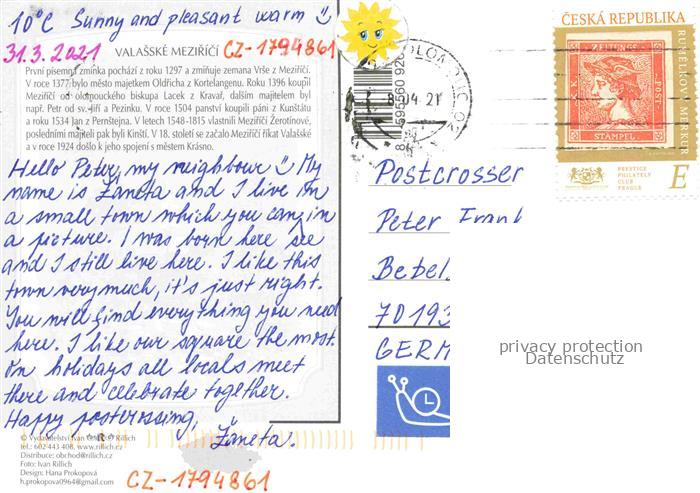 10°C Sunny and pleasant warm
31.3.2021 VALAŠSKÉ MEZIŘÍČÍ CZ-1794861
První písemná zmínka pochází z roku 1297 a zmiňuje zemana Vrše z Meziříčí.
V roce 1377 bylo město majetkem Oldřicha z Kortelangenu. Roku 1396 koupil
Meziříčí od olomouckého biskupa Lacek z Kravař, dalším majitelem byl
např. Petr od sv. Jiří a Pezinku. V roce 1504 panství koupili páni z Kunštátu
a roku 1534 Jan z Pernštejna. V letech 1548-1815 vlastnili Meziříčí Žerotínové,
posledními majiteli pak byli Kinští. V 18. století se začalo Meziříčí říkat Valašské
a v roce 1924 došlo k jeho spojení s městem Krásno.
Hello Peter, my neighbour My
name is Žaneta and I live in
a small town which you can in
a picture. I was born here see
and I still live here. I like this
town very much, it's just right.
You will find everything you need
here. I like our square the most.
On holidays all locals meet
there and celebrate together.
Happy postcrossing,
Žaneta.
© Vydavatelství Ivan Rillich
tel.: 602 443 408, www.rillich.cz
Distribuce: obchod@rillich.cz
Foto: Ivan Rillich
Design: Hana Prokopová
h.prokopova0964@gmail.com
CZ-1794861
8 595560 920
OLOMOUC
04.21
ČESKÁ REPUBLIKA
RUMĚLKOVÝ MERKUR
ZEITUNGS
POST
STAMPEL
PRESTIGE
PHILATELY
CLUB
PRAGUE
E
Postcrosser
Peter Frank
Bebel
70193
GERM
privacy protection
Datenschutz